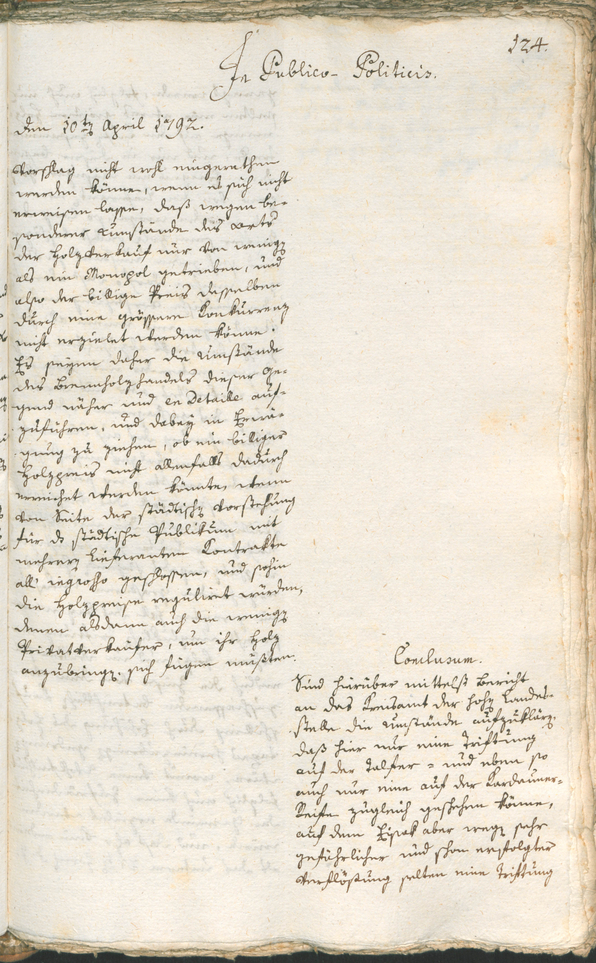 124.
In Publico-Politicis.
den 10tn April 1792.
Vorschlag nicht wohl eingerathen
werden könne, wenn es sich nicht
erweisen lasse, daß wegen be-
sonderer Umstände des Orts
der Holzverkauf nur von wenign
als ein Monopol getrieben, und
also der billige Preis desselben
durch eine grössere Konkurrenz
nicht erzielet werden könne.
Es seyen daher die Umstände
des Brennholzhandels dieser Ge-
gend näher und en Detaille auf-
zuführen, und dabey in Erwä-
gung zu ziehen, ob ein billiger
Holzpreis nicht allenfalls dadurch
erreichet werden könnte, wenn
von Seite der städtischn Vorstehung
für ds städtische Publikum mit
mehrern Lieferanten Kontrakte
all' ingrosso geschlossen, und sohin
die Holzpreise regulirt würden,
denen alsdann auch die wenign
Privatverkäufer, um ihr Holz
anzubringn, sich fügen müßten.
Conclusum.
Sind hierüber mittelst Bericht
an das Kreisamt der hohn Landes-
stelle die Umstände aufzuklärn,
daß hier nur eine Triftung
auf der Talfer- und eben so
auch nur eine auf der Kardauner-
Seite zugleich geschehen könne,
auf dem Eisak aber wegn sehr
gefährlicher und schon erfolgter
Verflössung selten eine Triftung